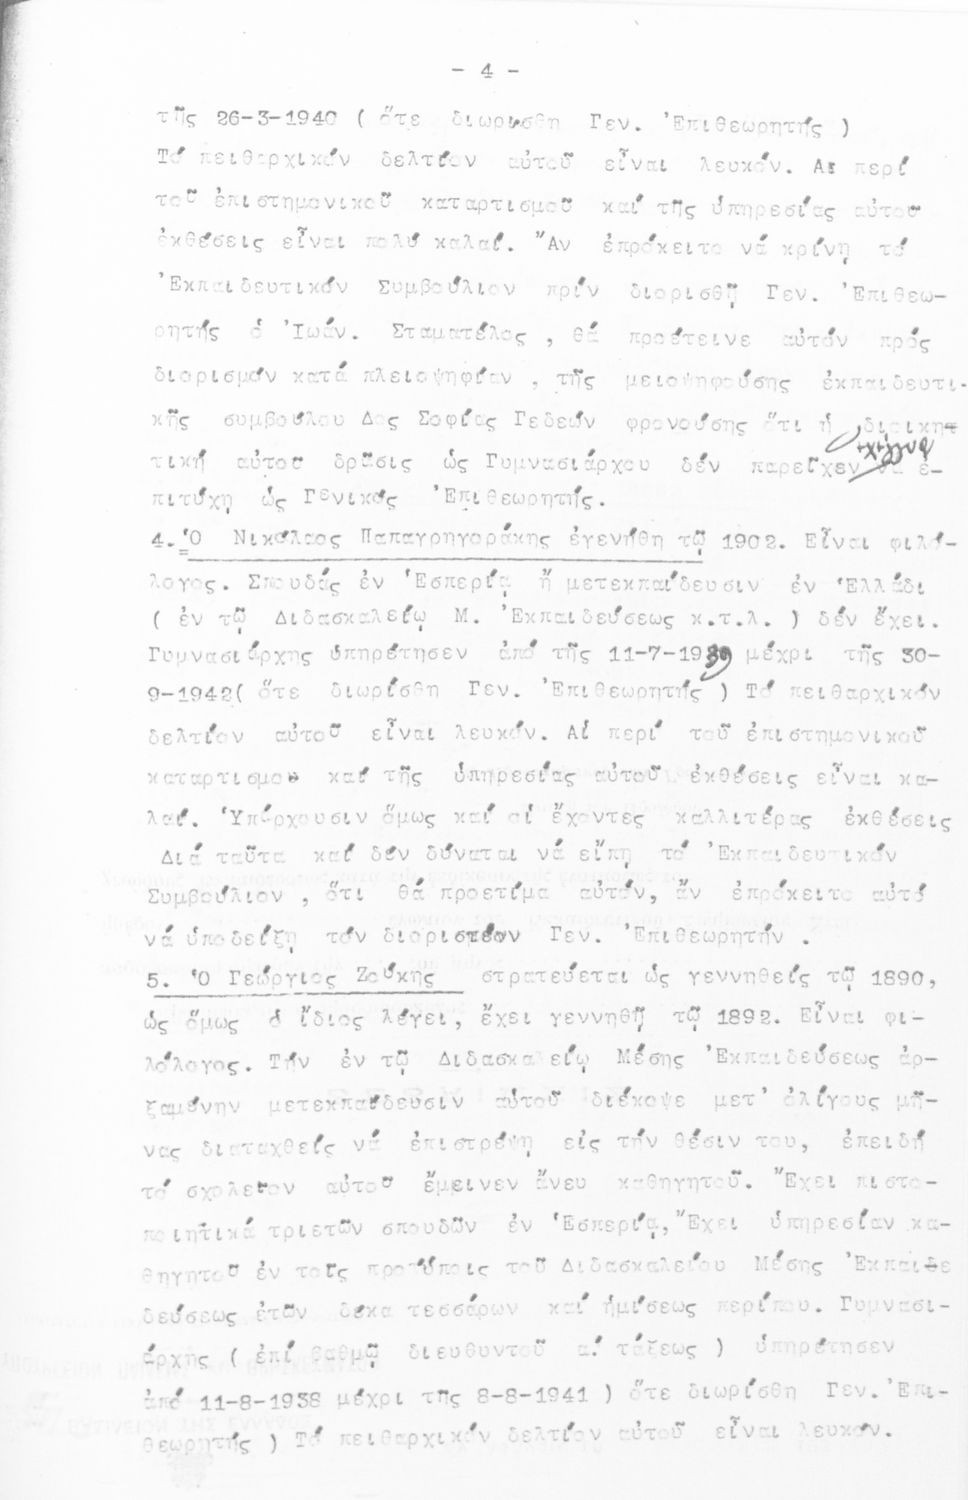 - 4 -
τῆς 26-3-1940 ( ὅτε διωρίσθη Γεν. Ἐπιθεωρητής )
Τό πειθαρχικόν δελτίον αὐτοῦ εἶναι λευκόν. Αἱ περί
τοῦ ἐπιστημονικοῦ καταρτισμοῦ καί τῆς ὑπηρεσίας αὐτοῦ
ἐκθέσεις εἶναι πολύ καλαί. Ἄν ἐπρόκειτο νά κρίνῃ τό
Ἐκπαιδευτικόν Συμβούλιον πρίν διορισθῇ Γεν. Ἐπιθεω-
ρητής ὁ Ἰωάν. Σταματέλος , θά προέτεινε αὐτόν πρός
διορισμόν κατά πλειοψηφίαν , τῆς μειοψηφούσης ἐκπαιδευτι-
κῆς συμβούλου Δος Σοφίας Γεδεών φρονούσης ὅτι ἡ διοικητ
τική αὐτοῦ δρᾶσις ὡς Γυμνασιάρχου δέν παρεῖχεν νά ἐ-
πιτύχῃ ὡς Γενικός Ἐπιθεωρητής.
4. Ὁ Νικόλαος Παπαγρηγοράκης ἐγενήθη τῷ 1902. Εἶναι φιλό-
λογος. Σπουδάς ἐν Ἑσπερίᾳ ἤ μετεκπαίδευσιν ἐν Ἑλλάδι
( ἐν τῷ Διδασκαλείῳ Μ. Ἐκπαιδεύσεως κ.τ.λ. ) δέν ἔχει.
Γυμνασιάρχης ὑπηρέτησεν ἀπό τῆς 11-7-1939 μέχρι τῆς 30-
9-1942( ὅτε διωρίσθη Γεν. Ἐπιθεωρητής ) Τό πειθαρχικόν
δελτίον αὐτοῦ εἶναι λευκόν. Αἱ περί τοῦ ἐπιστημονικοῦ
καταρτισμοῦ καί τῆς ὑπηρεσίας αὐτοῦ ἐκθέσεις εἶναι κα-
λαί. Ὑπάρχουσιν ὅμως καί οἱ ἔχοντες καλλιτέρας ἐκθέσεις
Διά ταῦτα καί δέν δύναται νά εἴπῃ τό Ἐκπαιδευτικόν
Συμβούλιον , ὅτι θά προετίμα αὐτόν, ἄν ἐπρόκειτο αὐτό
νά ὑποδείξῃ τόν διοριστέον Γεν. Ἐπιθεωρητήν .
5. Ὁ Γεώργιος Ζούκης στρατεύεται ὡς γεννηθείς τῷ 1890,
ὡς ὅμως ὁ ἴδιος λέγει, ἔχει γεννηθῆ τῷ 1892. Εἶναι φι-
λόλογος. Τήν ἐν τῷ Διδασκαλείῳ Μέσης Ἐκπαιδεύσεως ἀρ-
ξαμένην μετεκπαίδευσιν αὐτοῦ διέκοψε μετ' ὀλίγους μῆ-
νας διαταχθείς νά ἐπιστρέψῃ εἰς τήν θέσιν του, ἐπειδή
τό σχολεῖον αὐτοῦ ἔμεινεν ἄνευ καθηγητοῦ. Ἔχει πιστο-
ποιητικά τριετῶν σπουδῶν ἐν Ἑσπερίᾳ, Ἔχει ὑπηρεσίαν κα-
θηγητοῦ ἐν τοῖς προτύποις τοῦ Διδασκαλείου Μέσης Ἐκπαιδε
δεύσεως ἐτῶν δέκα τεσσάρων καί ἡμίσεως περίπου. Γυμνασι-
άρχης ( ἐπί βαθμῷ διευθυντοῦ α΄ τάξεως ) ὑπηρέτησεν
ἀπό 11-8-1938 μέχρι τῆς 8-8-1941 ) ὅτε διωρίσθη Γεν. Ἐπι-
θεωρητής ) Τό πειθαρχικόν δελτίον αὐτοῦ εἶναι λευκόν.